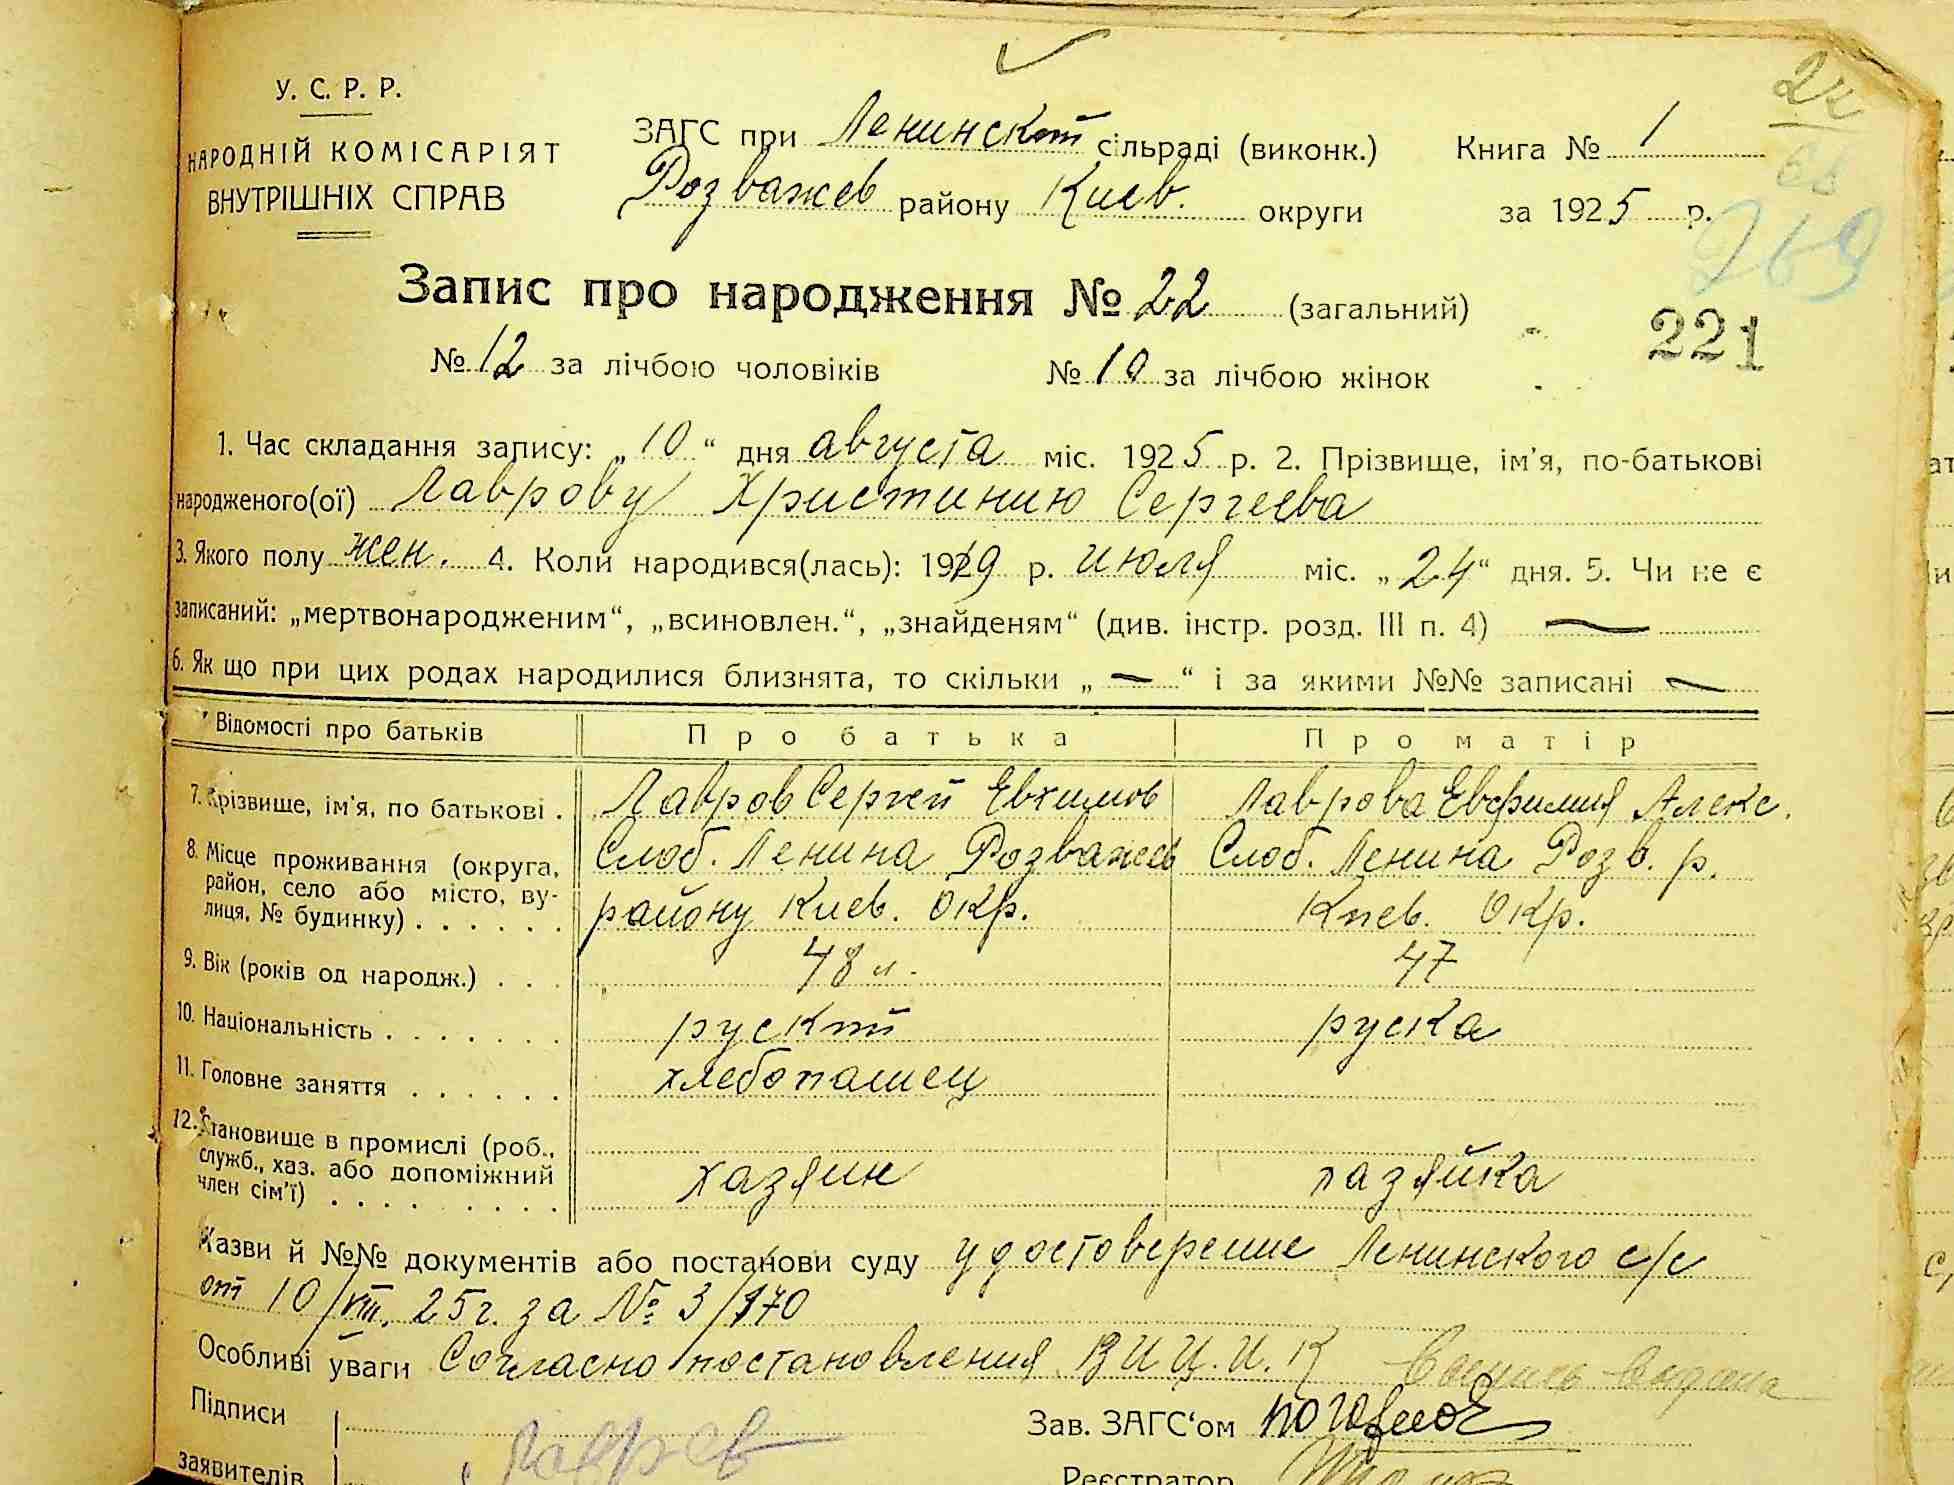 У. С. Р. Р.
НАРОДНІЙ КОМІСАРІЯТ
ВНУТРІШНІХ СПРАВ
ЗАГС при Ленинской сільраді (виконк.) Книга № 1
Розважев району Киев. округи за 1925 р.
24
269
Запис про народження № 22 (загальний)
221
№ 12 за лічбою чоловіків № 10 за лічбою жінок
1. Час складання запису: „10“ дня августа міс. 1925 р. 2. Прізвище, ім'я, по-батькові
народженого(ої) Лаврову Христинию Сергеева
3. Якого полу жен. 4. Коли народився(лась): 1919 р. июля міс. „24“ дня. 5. Чи не є
записаний: „мертвонародженим“, „всиновлен.“, „знайденям“ (див. інстр. розд. III п. 4) —
6. Як що при цих родах народилися близнята, то скільки „—“ і за якими №№ записані —
Відомості про батьків Про батька Про матір
7. Прізвище, ім'я, по батькові . Лавров Сергей Евхимов Лаврова Евфимия Алекс.
8. Місце проживання (округа, район, село або місто, вулиця, № будинку) . . . . . . Слоб. Ленина Розважев Слоб. Ленина Розв. р.
району Киев. Окр. Киев. Окр.
9. Вік (років од народж.) . . . 48 л. 47
10. Національність . . . . . . . руский руска
11. Головне заняття . . . . . . хлебопашец
12. Становище в промислі (роб., служб., хаз. або допоміжний член сім'ї) . . . . . . . . хазяин хазяйка
Назви й №№ документів або постанови суду удостоверение Ленинского с/с
от 10/VIII. 25г. за № 3/170
Особливі уваги Согласно постановления ВУЦ.И.К
Підписи Зав. ЗАГС'ом
заявителів Лавров Реєстратор